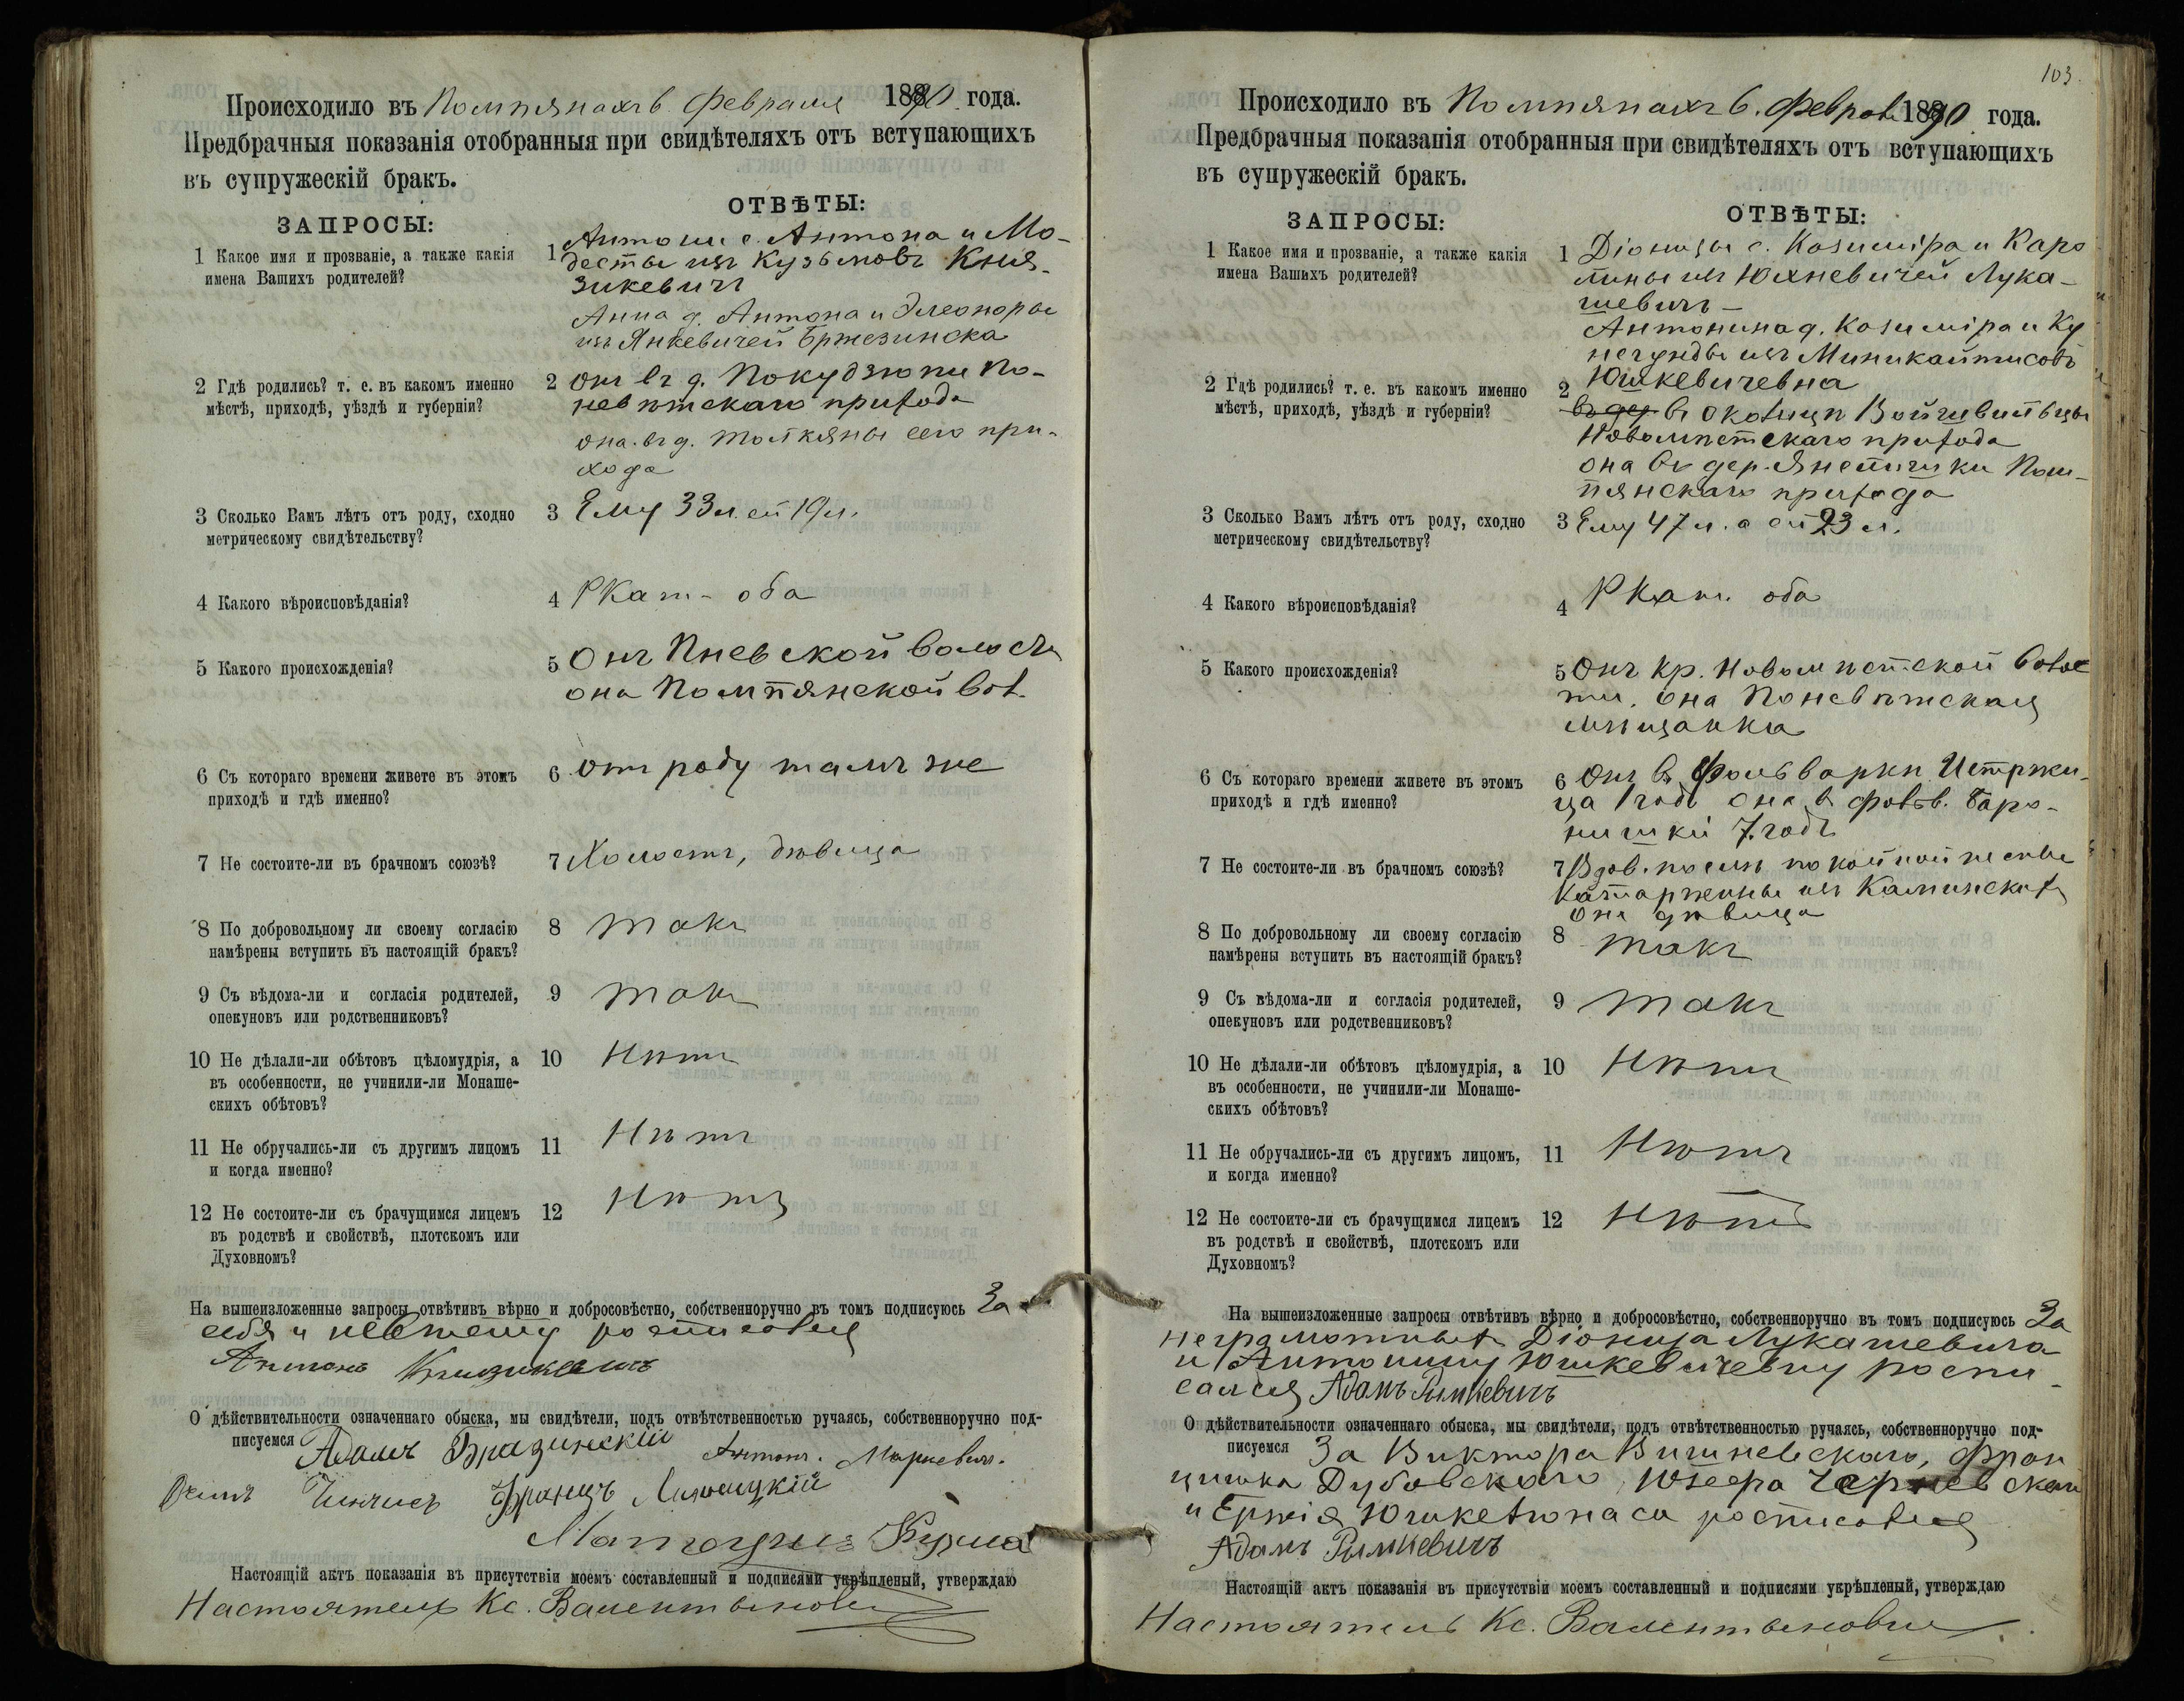 Происходило въ Помпянахъ 6. февраля 1890 года.
Предбрачныя показанія отобранныя при свидѣтеляхъ отъ вступающихъ
въ супружескій бракъ.
ЗАПРОСЫ:
ОТВѢТЫ:
1 Какое имя и прозваніе, а также какія
имена Вашихъ родителей?
1 Антоній с. Антона и Мо-
десты изъ Кузьмовъ Кня-
зикевичъ
Анна д. Антона и Элеоноры
изъ Янкевичей Бржезинска
2 Гдѣ родились? т. е. въ какомъ именно
мѣстѣ, приходѣ, уѣздѣ и губерніи?
2 онъ въ д. Покудзюпи По-
невѣжскаго прихода
она въ д. сего при-
хода
3 Сколько Вамъ лѣтъ отъ роду, сходно
метрическому свидѣтельству?
3 Ему 33 л. ей 19 л.
4 Какого вѣроисповѣданія?
4 РКат. оба
5 Какого происхожденія?
5 Онъ Пневской волости
она Помпянской вол.
6 Съ котораго времени живете въ этомъ
приходѣ и гдѣ именно?
6 отъ роду тамъ же
7 Не состоите-ли въ брачномъ союзѣ?
7 Холостъ, дѣвица
8 По добровольному ли своему согласію
намѣрены вступить въ настоящій бракъ?
8 такъ
9 Съ вѣдома-ли и согласія родителей,
опекуновъ или родственниковъ?
9 такъ
10 Не дѣлали-ли обѣтовъ цѣломудрія, а
въ особенности, не учинили-ли Монаше-
скихъ обѣтовъ?
10 Нѣтъ
11 Не обручались-ли съ другимъ лицомъ
и когда именно?
11 Нѣтъ
12 Не состоите-ли съ брачущимся лицемъ
въ родствѣ и свойствѣ, плотскомъ или
Духовномъ?
12 Нѣтъ
На вышеизложенные запросы отвѣтивъ вѣрно и добросовѣстно, собственноручно въ томъ подписуюсь За
себя и невѣсту росписался
Антонъ Князикевичъ
О дѣйствительности означеннаго обыска, мы свидѣтели, подъ отвѣтственностью ручаясь, собственноручно под-
писуемся Адамъ Антонъ Маркевичъ.
Францъ
Настоящій актъ показанія въ присутствіи моемъ составленный и подписями укрѣпленый, утверждаю
Настоятель Кс. Валентыновичъ
103.
Происходило въ Помпянахъ 6. Феврал 1890 года.
Предбрачныя показанія отобранныя при свидѣтеляхъ отъ вступающихъ
въ супружескій бракъ.
ЗАПРОСЫ:
ОТВѢТЫ:
1 Какое имя и прозваніе, а также какія
имена Вашихъ родителей?
1 Діонизы с. Казиміра и Каро
лины изъ Юхневичей Лука-
шевичъ -
Антонина д. Казиміра и Ку
негунды изъ Миникайтисовъ
Юшкевичевна
2 Гдѣ родились? т. е. въ какомъ именно
мѣстѣ, приходѣ, уѣздѣ и губерніи?
2 въ дер въ околицѣ
Новомѣстскаго прихода
она въ дер. Пом-
пянскаго прихода
3 Сколько Вамъ лѣтъ отъ роду, сходно
метрическому свидѣтельству?
3 Ему 47 л. а ей 23 л.
4 Какого вѣроисповѣданія?
4 РКат. оба
5 Какого происхожденія?
5 Онъ кр. Новомѣстской волос
ти, она Поневѣжская
мѣщанка
6 Съ котораго времени живете въ этомъ
приходѣ и гдѣ именно?
6 Онъ въ Фольварки Истржи-
ца 1 годъ она въ фольв. Баро-
нишки 7. годъ
7 Не состоите-ли въ брачномъ союзѣ?
7 Вдов. послѣ покойной жены
Катаржины изъ Каминскихъ
она дѣвица
8 По добровольному ли своему согласію
намѣрены вступить въ настоящій бракъ?
8 такъ
9 Съ вѣдома-ли и согласія родителей,
опекуновъ или родственниковъ?
9 такъ
10 Не дѣлали-ли обѣтовъ цѣломудрія, а
въ особенности, не учинили-ли Монаше-
скихъ обѣтовъ?
10 Нѣтъ
11 Не обручались-ли съ другимъ лицомъ,
и когда именно?
11 Нѣтъ
12 Не состоите-ли съ брачущимся лицемъ
въ родствѣ и свойствѣ, плотскомъ или
Духовномъ?
12 Нѣтъ
На вышеизложенные запросы отвѣтивъ вѣрно и добросовѣстно, собственноручно въ томъ подписуюсь За
неграмотныхъ Діониза Лукашевича
и Антонину Юшкевичевну роспи-
сался Адамъ Римкевичъ
О дѣйствительности означеннаго обыска, мы свидѣтели, подъ отвѣтственностью ручаясь, собственноручно под-
писуемся За Виктора Вишневскаго, Фран
цишка Дубовскаго, Юзефа
и Ержія росписался
Адамъ Римкевичъ
Настоящій актъ показанія въ присутствіи моемъ составленный и подписями укрѣпленый, утверждаю
Настоятель Кс. Валентыновичъ